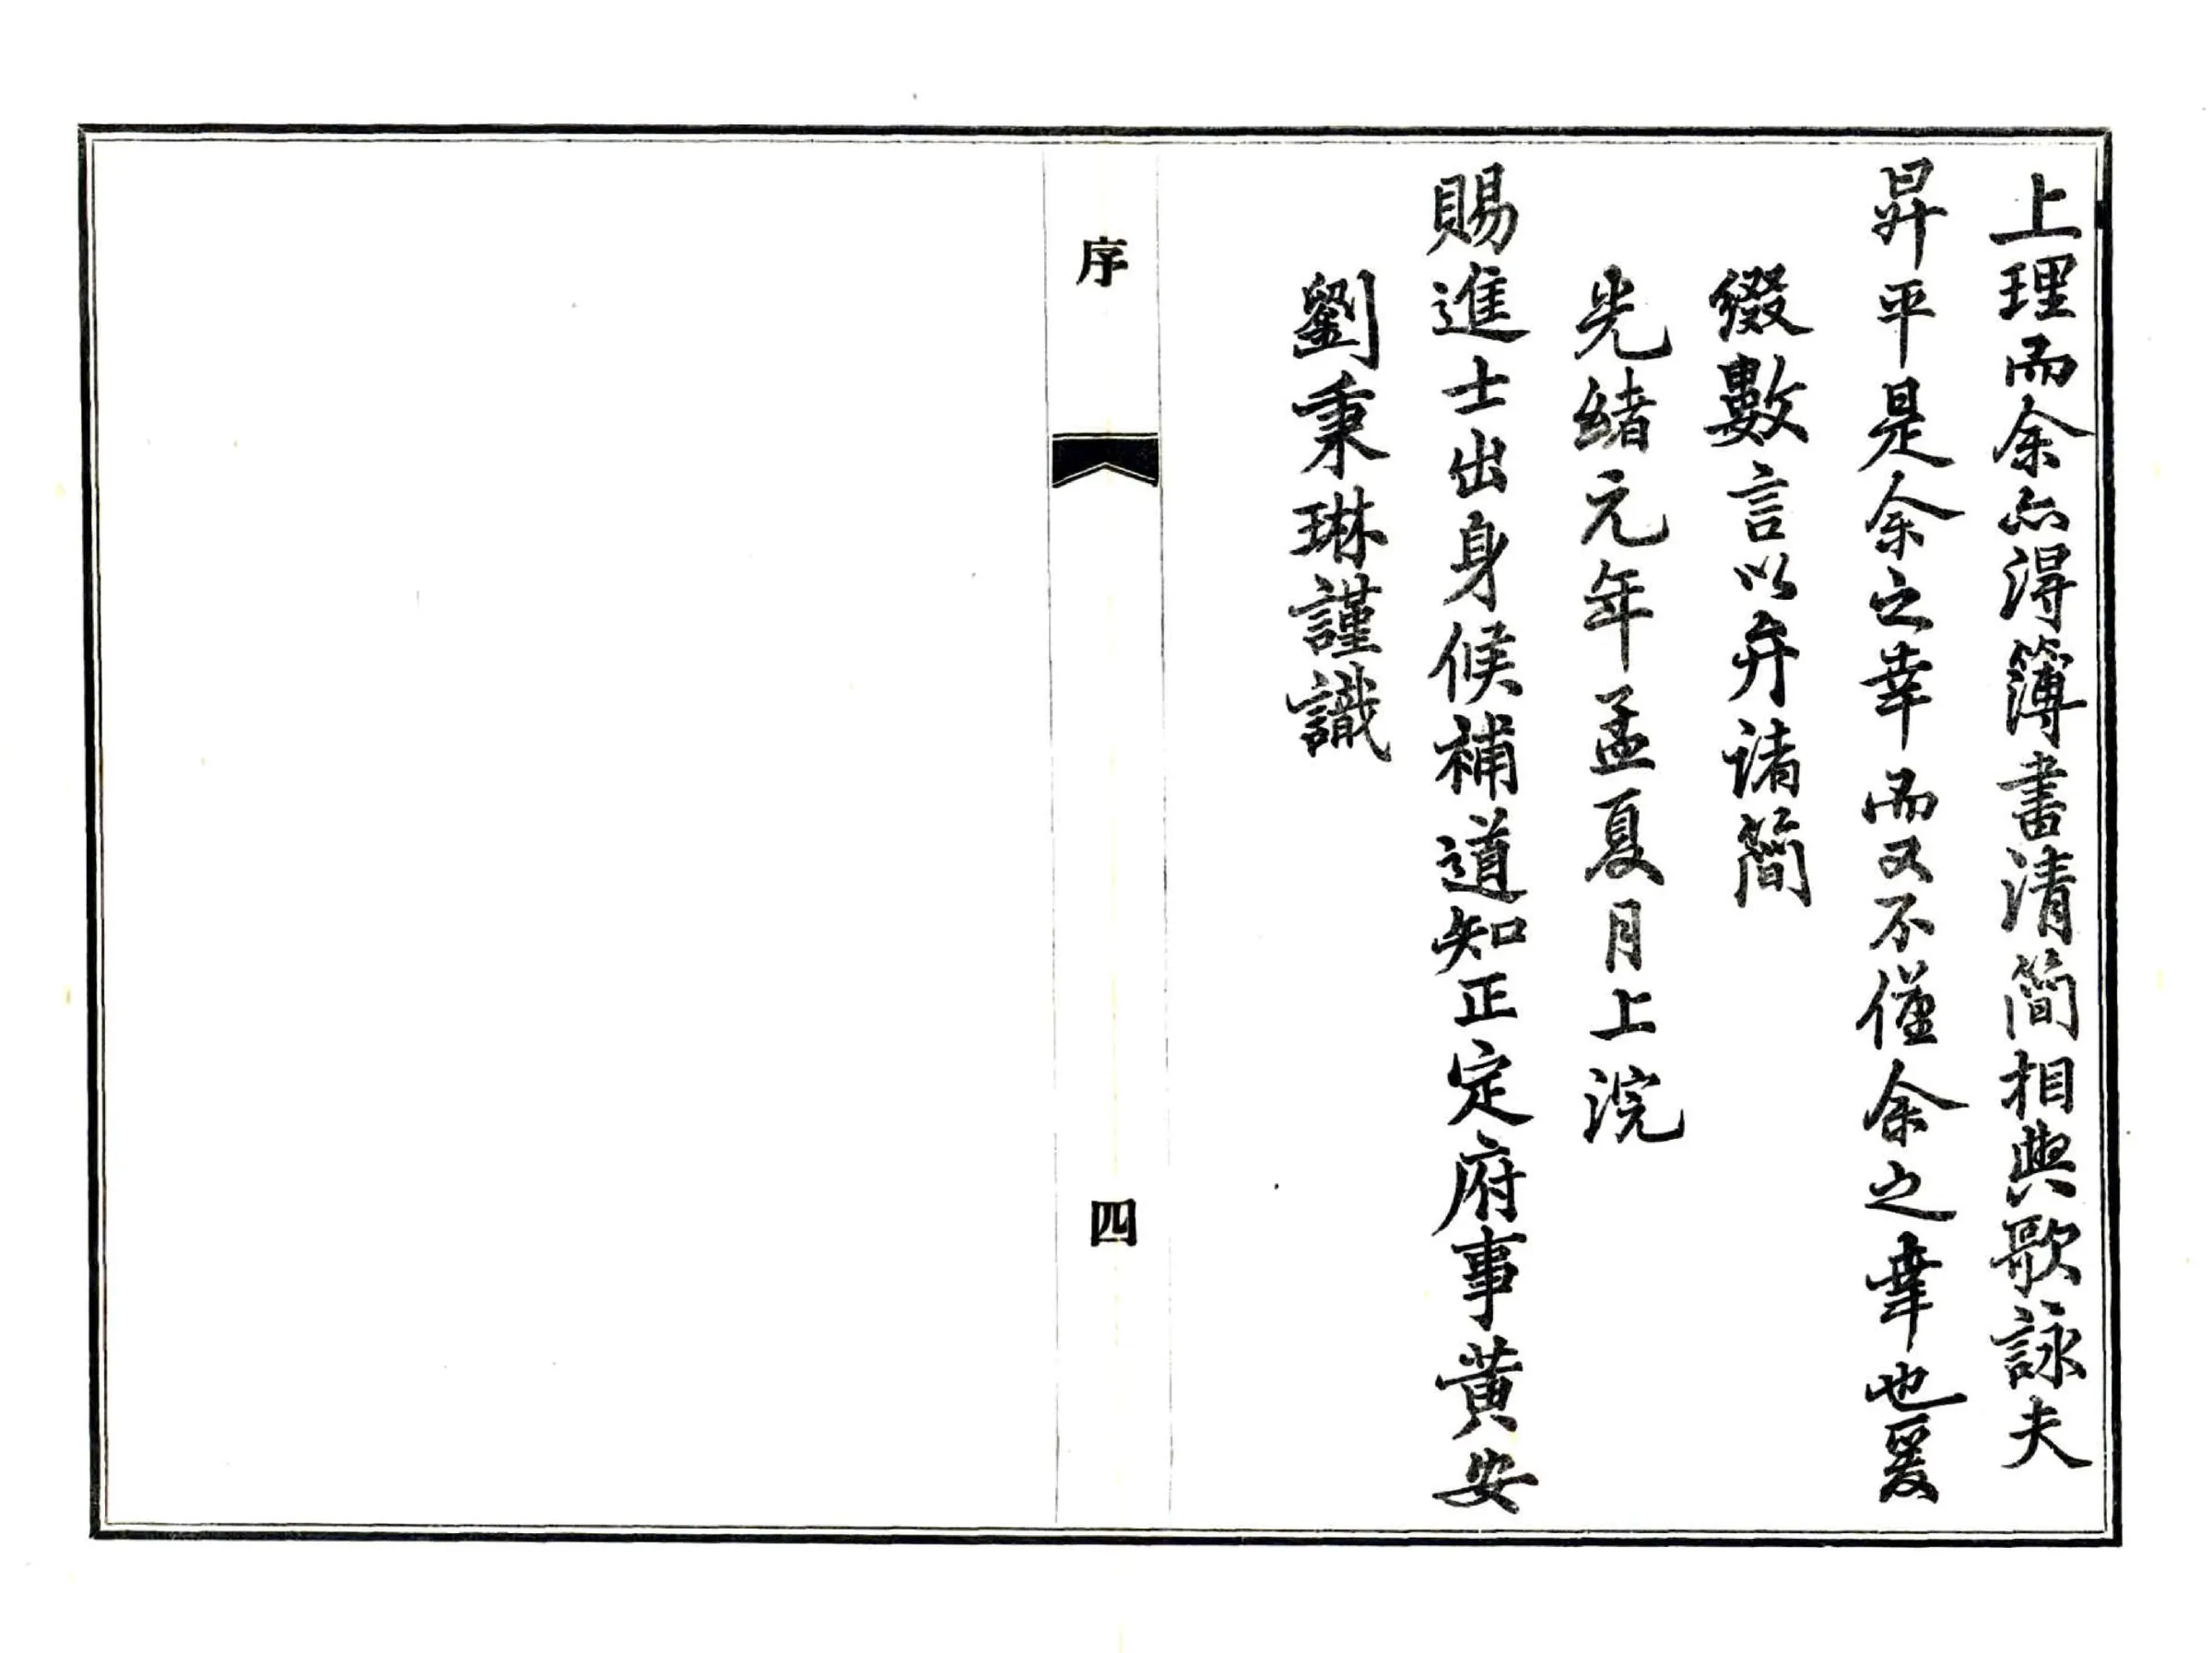 上理而余亦得簿書清簡相與歌詠夫
昇平是余之幸而又不僅余之幸也爰
綴數言以弁諸簡
光緒元年孟夏月上浣
賜進士出身候補道知正定府事黃安
劉秉琳謹識
序
四